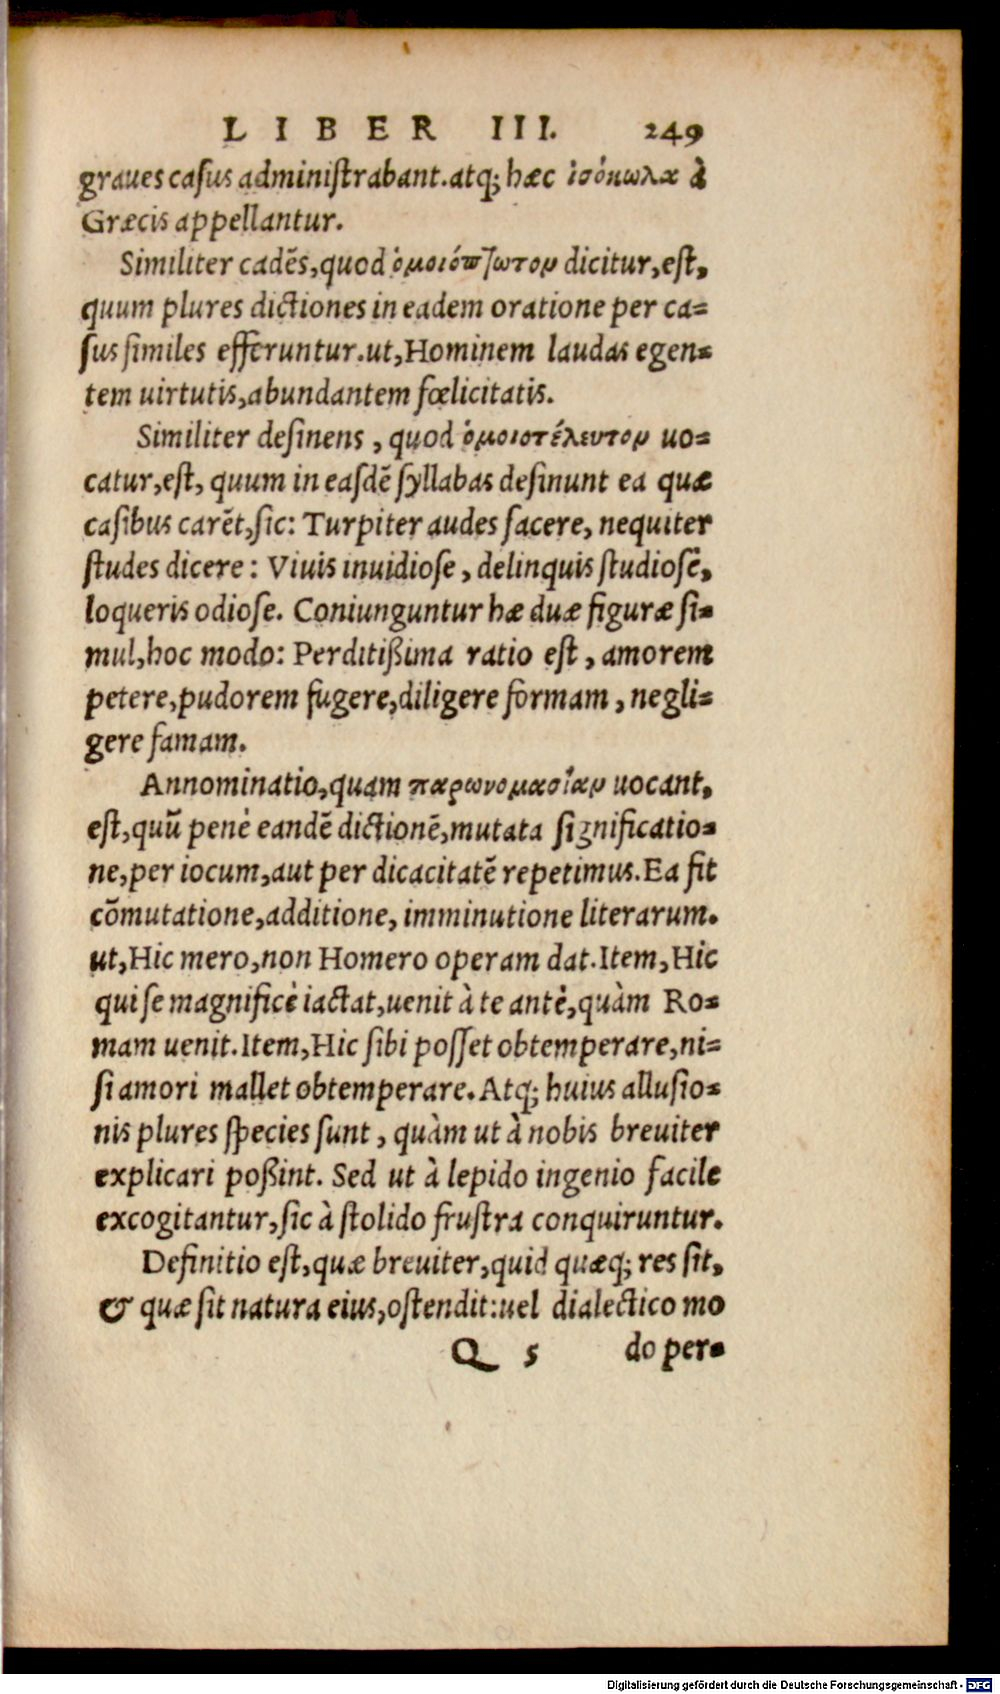 LIBER III. 249
graues casus administrabant. atq; hæc ἰσόκωλα à
Græcis appellantur.
Similiter cadẽs, quod ὁμοιόπτωτον dicitur, est,
quum plures dictiones in eadem oratione per ca-
sus similes efferuntur. ut, Hominem laudas egen-
tem uirtutis, abundantem fœlicitatis.
Similiter desinens, quod ὁμοιοτέλευτον uo-
catur, est, quum in easdẽ syllabas desinunt ea quæ
casibus carẽt, sic: Turpiter audes facere, nequiter
studes dicere: Viuis inuidiose, delinquis studiosẽ,
loqueris odiose. Coniunguntur hæ duæ figuræ si-
mul, hoc modo: Perditißima ratio est, amorem
petere, pudorem fugere, diligere formam, negli-
gere famam.
Annominatio, quam παρωνομασίαν uocant,
est, quũ penè eandẽ dictionẽ, mutata significatio-
ne, per iocum, aut per dicacitatẽ repetimus. Ea fit
cõmutatione, additione, imminutione literarum.
ut, Hic mero, non Homero operam dat. Item, Hic
qui se magnificè iactat, uenit à te antè, quàm Ro-
mam uenit. Item, Hic sibi posset obtemperare, ni-
si amori mallet obtemperare. Atq; huius allusio-
nis plures species sunt, quàm ut à nobis breuiter
explicari poßint. Sed ut à lepido ingenio facile
excogitantur, sic à stolido frustra conquiruntur.
Definitio est, quæ breuiter, quid quæq; res sit,
& quæ sit natura eius, ostendit: uel dialectico mo
Q 5 do per-
Digitalisierung gefördert durch die Deutsche Forschungsgemeinschaft - DFG